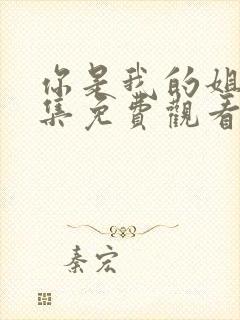 你是我的姐
集免費觀看
秦宏